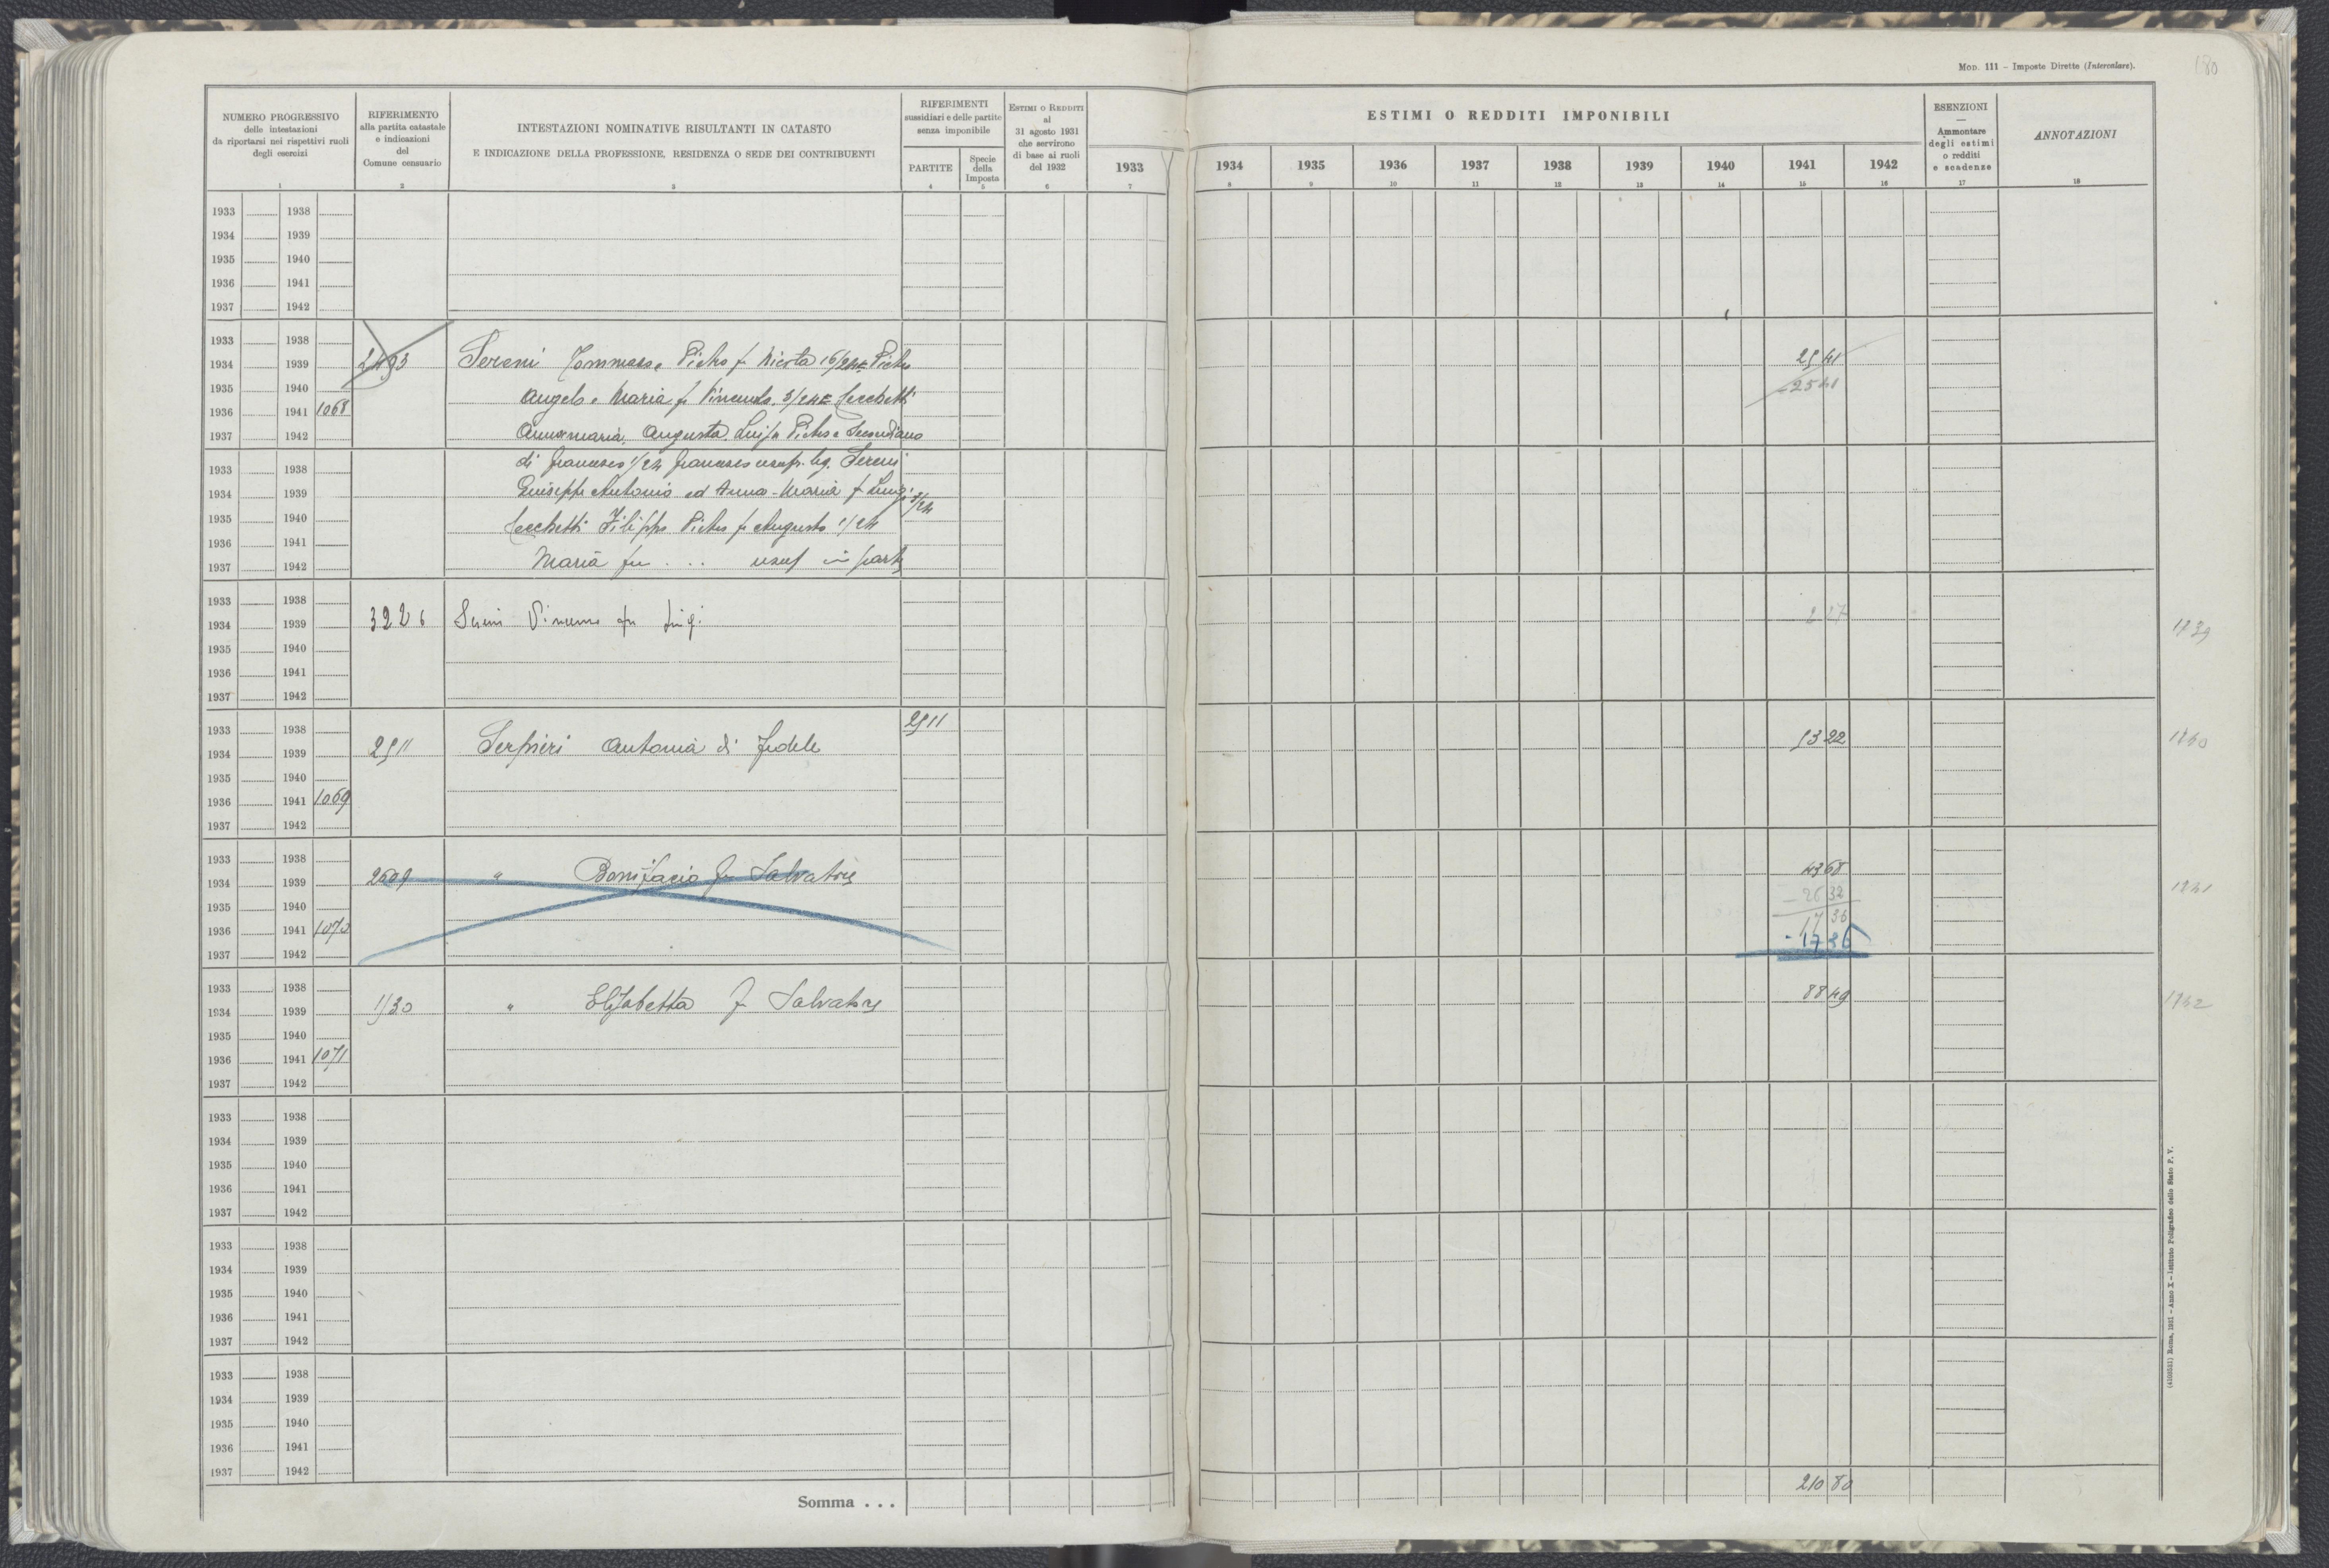 MOD. 111 – Imposte Dirette (Intercalare).
180
NUMERO PROGRESSIVO
delle intestazioni
da riportarsi nei rispettivi ruoli
degli esercizi
1
RIFERIMENTO
alla partita catastale
e indicazioni
del
Comune censuario
2
INTESTAZIONI NOMINATIVE RISULTANTI IN CATASTO
E INDICAZIONE DELLA PROFESSIONE, RESIDENZA O SEDE DEI CONTRIBUENTI
3
RIFERIMENTI
sussidiari e delle partite
senza imponibile
PARTITE
4
Specie
della
Imposta
5
ESTIMI O REDDITI
al
31 agosto 1931
che servirono
di base ai ruoli
del 1932
6
1933
7
ESTIMI O REDDITI IMPONIBILI
1934 1935 1936 1937 1938 1939 1940 1941 1942
8 9 10 11 12 13 14 15 16
ESENZIONI
—
Ammontare
degli estimi
o redditi
e scadenze
17
ANNOTAZIONI
18
1933 1938
1934 1939
1935 1940
1936 1941
1937 1942
1933 1938
1934 1939 2493 Sereni Tommaso e Pietro fu Nicola 16/24 = Pietro 25 41
1935 1940 Angelo e Maria fu Vincenzo 3/24 = Cecchetti - 25 41
1936 1941 1068
1937 1942 Annamaria, Augusta, Luisa Pietro e Secondiano
1933 1938 di Francesco 1/24 Francesco usuf. leg. Sereni
1934 1939 Giuseppe Antonio ed Anna-Maria f Luigi 3/24
1935 1940 Cecchetti Filippo Pietro fu Augusto 1/24
1936 1941
1937 1942 Maria fu . . . usuf in parte
1933 1938
1934 1939 3226 Sereni Vincenzo fu Luigi 2 27 1839
1935 1940
1936 1941
1937 1942
1933 1938 2511
1934 1939 2511 Serpieri Antonia di Fedele 53 22 1840
1935 1940
1936 1941 1069
1937 1942
1933 1938
1934 1939 2609 " Bonifacio fu Salvatore 43 68 1841
1935 1940 - 26 32
1936 1941 1070 17 36
1937 1942 - 17 36
1933 1938
1934 1939 1530 " Elisabetta fu Salvatore 88 49 1842
1935 1940
1936 1941 1071
1937 1942
1933 1938
1934 1939
1935 1940
1936 1941
1937 1942
1933 1938
1934 1939
1935 1940
1936 1941
1937 1942
1933 1938
1934 1939
1935 1940
1936 1941
1937 1942
Somma . . . 210 80
Roma, 1931 – Anno X – Istituto Poligrafico dello Stato P. V.